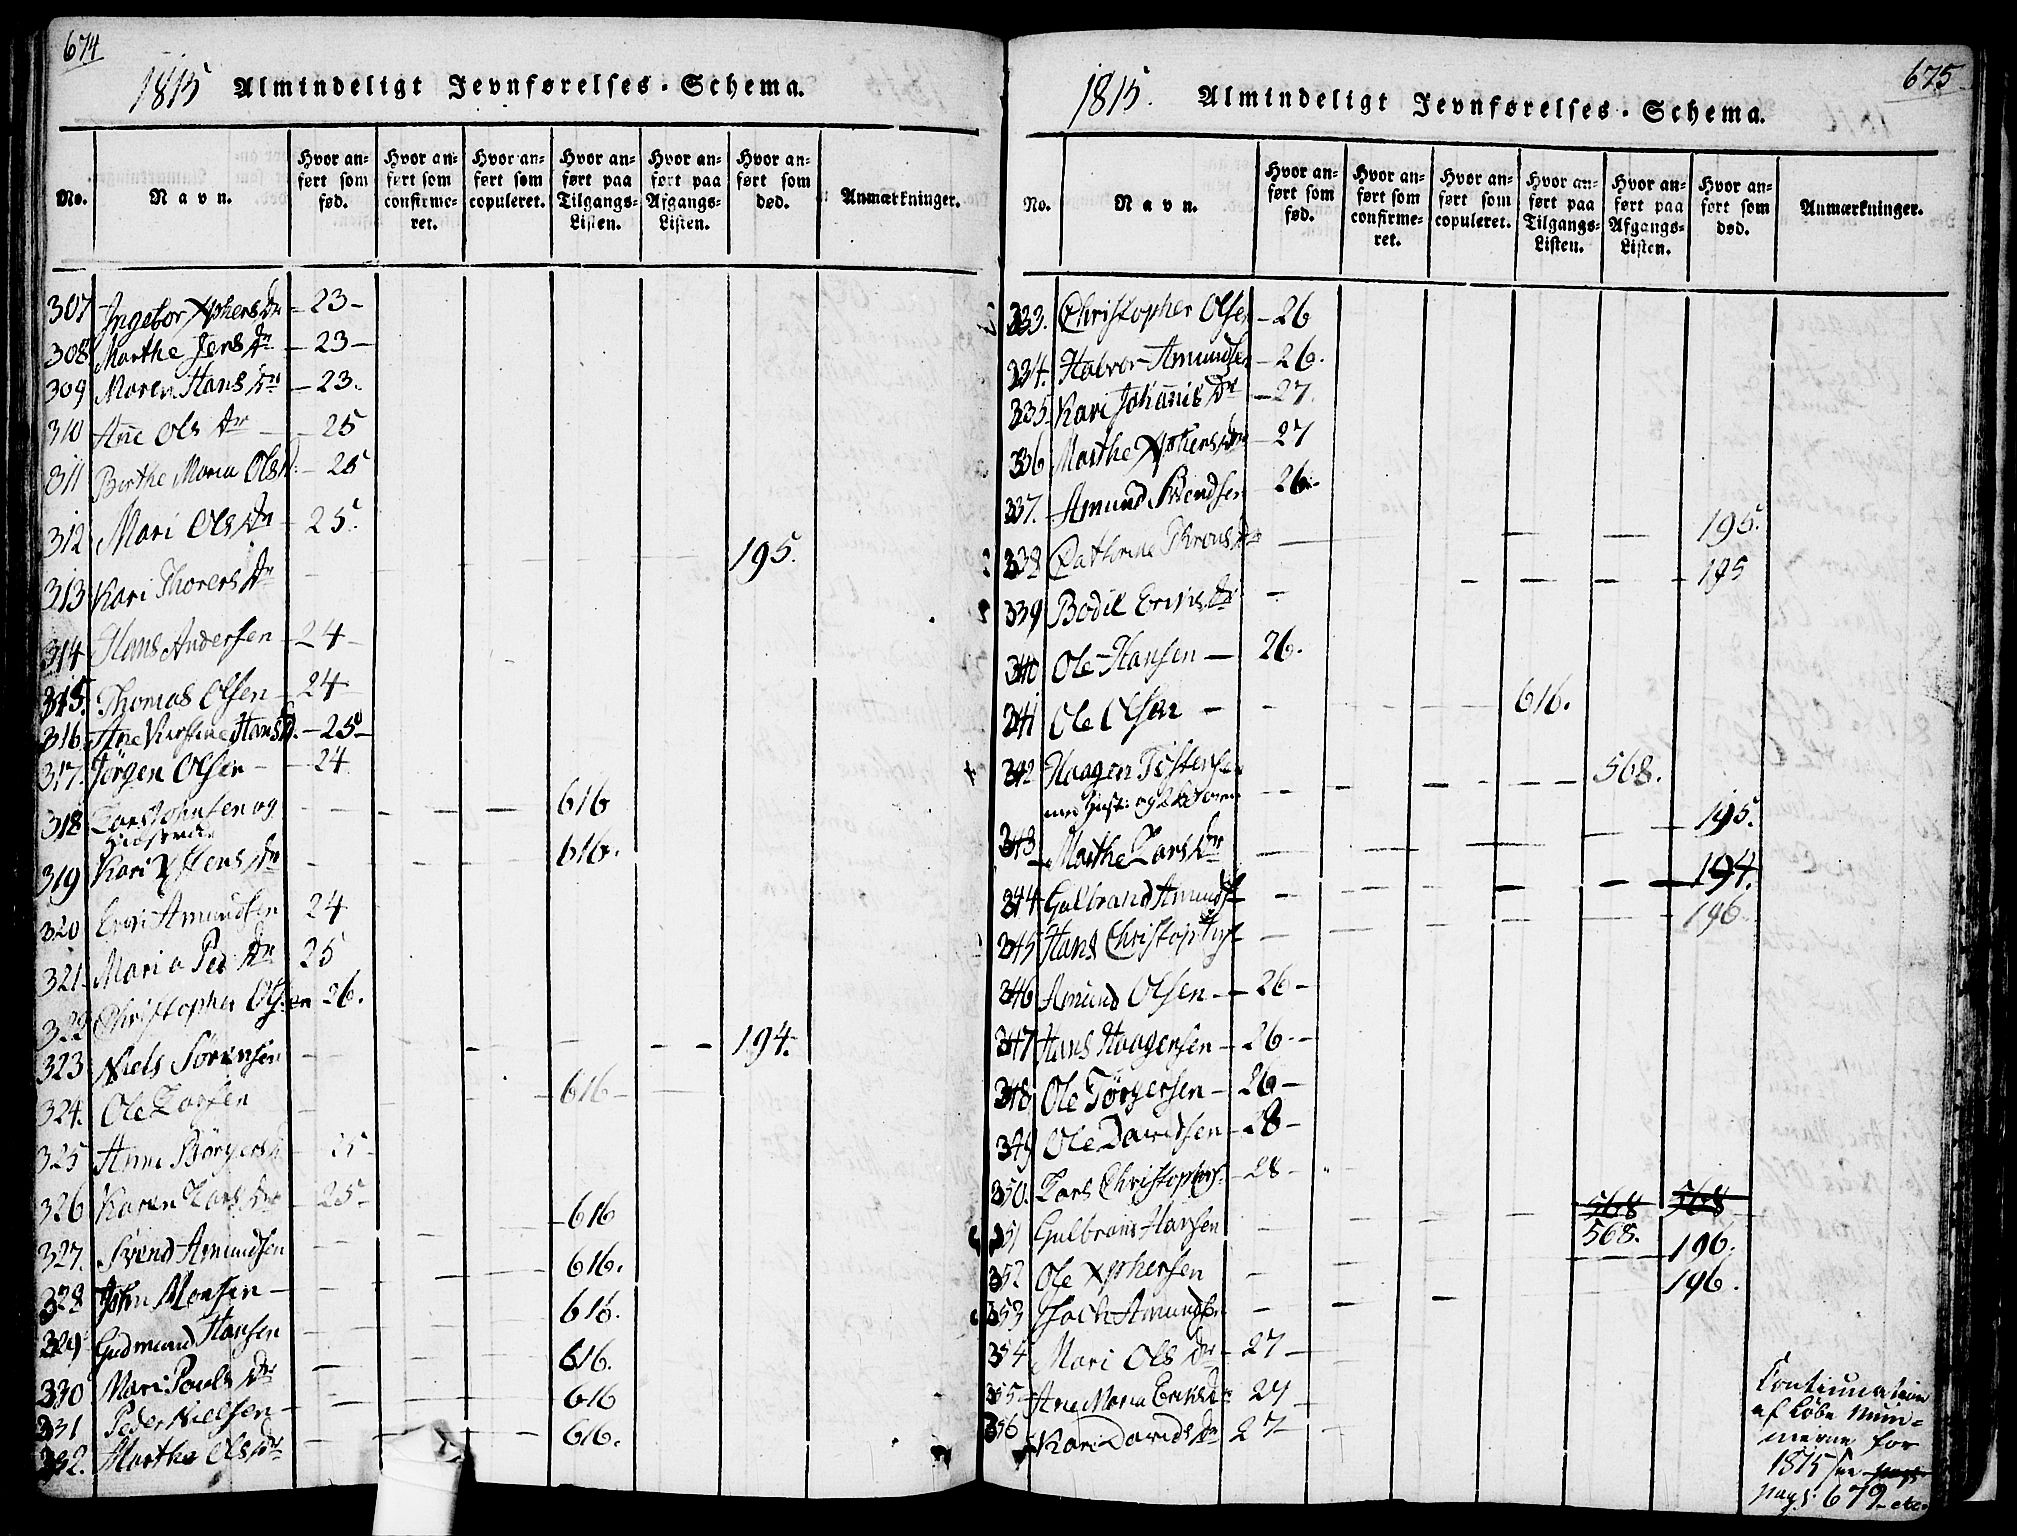 674
1815 Almindeligt Jevnførelses-Schema.
No.
Navn.
Hvor an-
ført som
fød.
Hvor an-
ført som
confirme-
ret.
Hvor an-
ført som
copuleret.
Hvor an-
ført paa
Tilgangs-
Listen.
Hvor an-
ført paa
Afgangs-
Listen.
Hvor an-
ført som
død.
Anmærkninger.
307 Ingebor Xphers Dr - 23 -
308 Marthe Jens Dr - 23 -
309 Maren Hans Dr - 23.
310 Ane Ols Dr - - 25
311 Berthe Maria Ols D. - 25
312 Mari Ols Dr - 25.
313 Kari Thorers Dr - 195.
314 Hans Andersen - 24 -
315. Thomas Olsen - 24
316. Ane Kirstine Hans D. - 25 -
317. Jörgen Olsen - - 24
318 Lars Johnsen og - - - 616
319 Kari Jens Dr - - - 616.
320 Amundsen 24
321 Maria Ped: Dr 25
322 Christopher Olsen 26.
323 Niels Sörensen - - - - 194.
324. Ole Larsen - 616 -
325 Anne Börgers D - 25 -
326 Karen Lars Dr - 25 -
327. Svend Amundsen - - - 616
328 John Monsen - - - 616.
329 Gudmund Hansen - - - 616.
330 Mari Pouls Dr - - - 616.
331 Peder Nielsen - - - 616
332. Marthe Ols Dr - - - 616.
675
1815. Almindeligt Jevnførelses-Schema.
No.
Navn.
Hvor an-
ført som
fød.
Hvor an-
ført som
confirme-
ret.
Hvor an-
ført som
copuleret.
Hvor an-
ført paa
Tilgangs-
Listen.
Hvor an-
ført paa
Afgangs-
Listen.
Hvor an-
ført som
død.
Anmærkninger.
333. Christopher Olsen - 26
334. Halvor Amundsen - 26.
335. Kari Johannis Dr - 27.
336 Marthe Xphers Dr - 27
337. Amund Svendsen 26 -
338 Cathrine Dr - - - 195.
339 Bodil Eriks Dr - - - - 195
340 Ole Hansen - 26.
341 Ole Olsen - - - 616.
342 Haagen Tostensen - - - - 568.
343 Marthe Lars Dr - - - - - 195.
344 Gulbrand Amunds - - - - - 194.
345 Hans Christophers - - - - - 196.
346 Amund Olsen - 26 -
347 Hans Haagensen - 26 -
348 Ole Törgersen - 26 -
349 Ole Davidsen - 28 -
350. Lars Christophers - 28 -
568 568
351 Gulbrand Hansen - - - - 568.
352 Ole Xphersen - - - - - 196.
353 Amundsen - - - - - 196.
354 Mari Ols Dr - 27 -
355 Ane Maria Eriks Dr 27
356 Kari Davids Dr 27 -
Continuation
af Löbe Num-
merne for
1815 see
pag: 679 etc.